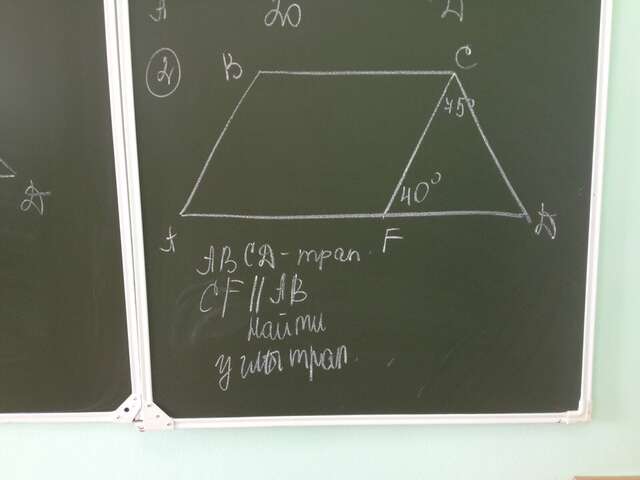 A 20 Д
2
B C
75°
Д
40°
A F Д
ABCД-трап.
CF || AB
Найти
углы трап.